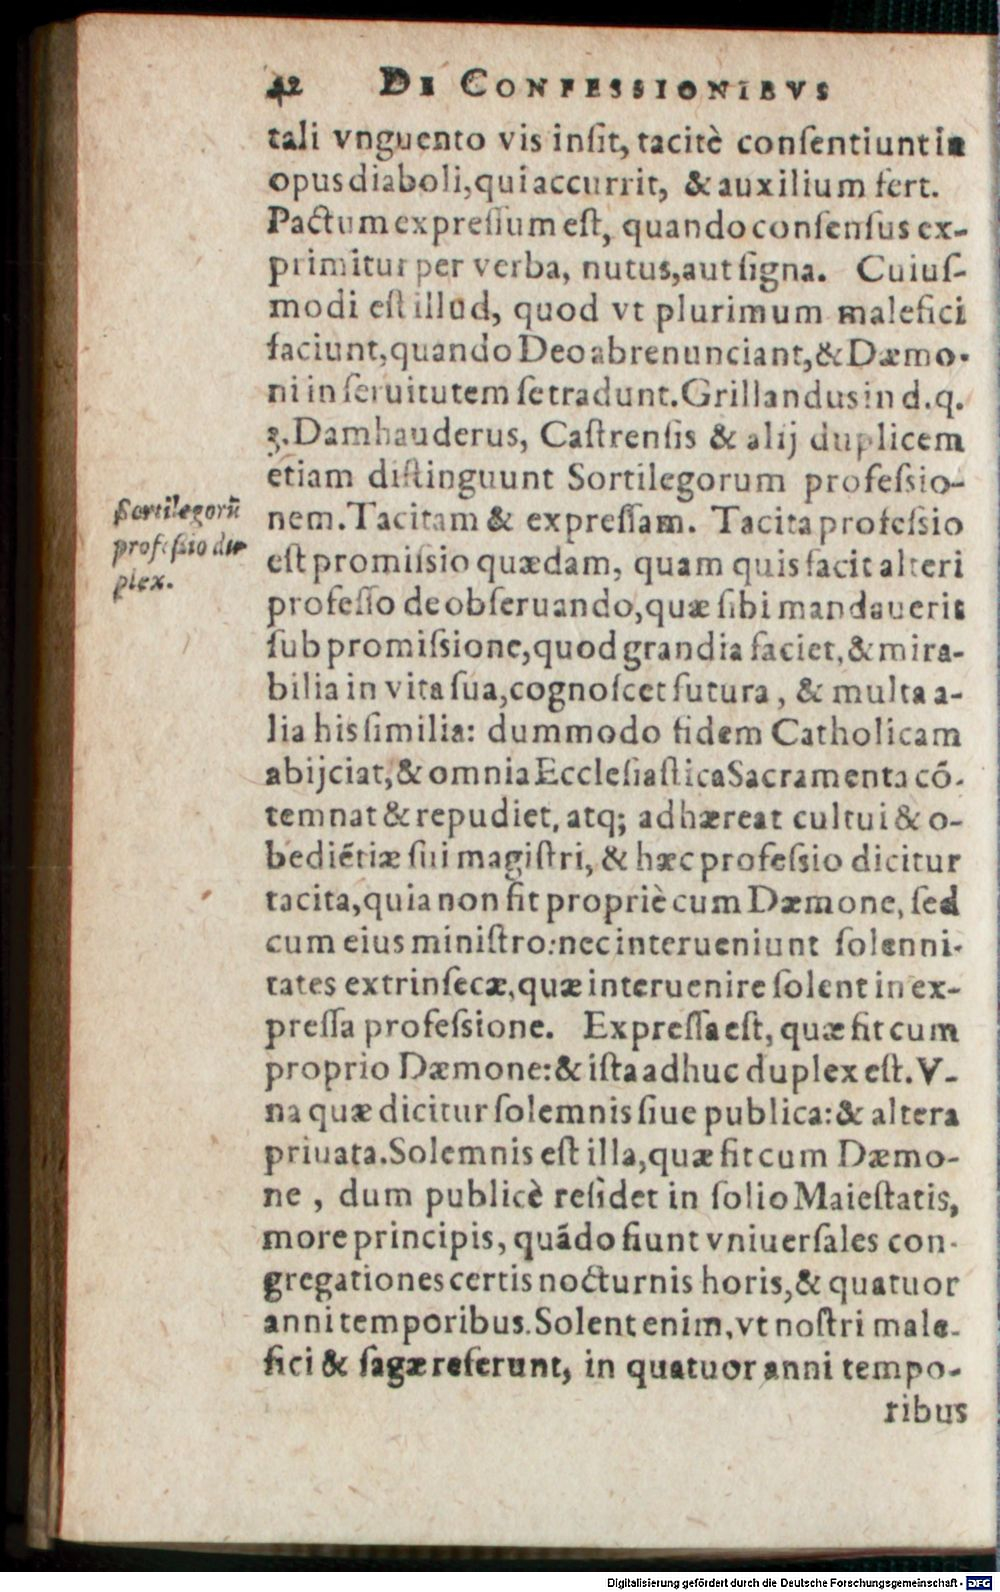 42 DE CONFESSIONIBVS
tali vnguento vis inſit, tacitè conſentiunt in
opus diaboli, qui accurrit, & auxilium fert.
Pactum expreſſum eſt, quando conſenſus ex-
primitur per verba, nutus, aut ſigna. Cuiuſ-
modi eſt illud, quod vt plurimum malefici
faciunt, quando Deo abrenunciant, & Dæmo-
ni in ſeruitutem ſe tradunt. Grillandus in d. q.
3. Damhauderus, Caſtrenſis & alij duplicem
etiam diſtinguunt Sortilegorum profeſsio-
Sortilegorū
profeſsio du-
plex.
nem. Tacitam & expreſſam. Tacita profeſsio
eſt promiſsio quædam, quam quis facit alteri
profeſſo de obſeruando, quæ ſibi mandauerit
ſub promiſsione, quod grandia faciet, & mira-
bilia in vita ſua, cognoſcet futura, & multa a-
lia his ſimilia: dummodo fidem Catholicam
abijciat, & omnia Eccleſiaſtica Sacramenta cō-
temnat & repudiet, atq; adhæreat cultui & o-
bediētiæ ſui magiſtri, & hæc profeſsio dicitur
tacita, quia non fit propriè cum Dæmone, ſed
cum eius miniſtro: nec interueniunt ſolenni-
tates extrinſecæ, quæ interuenire ſolent in ex-
preſſa profeſsione. Expreſſa eſt, quæ fit cum
proprio Dæmone: & iſta adhuc duplex eſt. V-
na quæ dicitur ſolemnis ſiue publica: & altera
priuata. Solemnis eſt illa, quæ fit cum Dæmo-
ne, dum publicè reſidet in ſolio Maieſtatis,
more principis, quādo fiunt vniuerſales con-
gregationes certis nocturnis horis, & quatuor
anni temporibus. Solent enim, vt noſtri male-
fici & ſagæ referunt, in quatuor anni tempo-
ribus
Digitalisierung gefördert durch die Deutsche Forschungsgemeinschaft - DFG